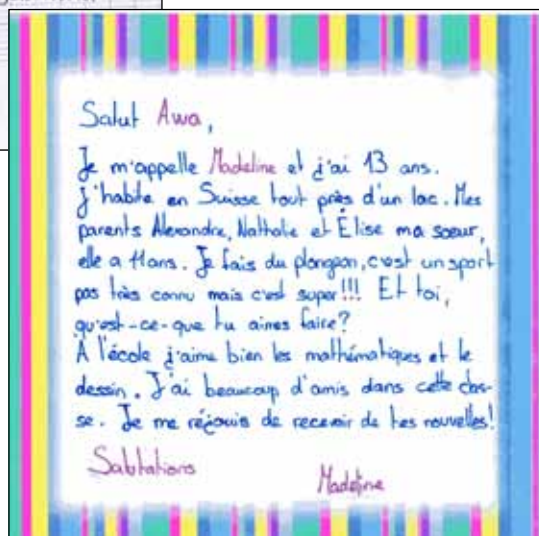 Salut Awa,
Je m'appelle Madeline et j'ai 13 ans.
J'habite en Suisse tout près d'un lac. Mes
parents Alexandre, Nathalie et Élise ma soeur,
elle a 11ans. Je fais du plongeon, c'est un sport
pas très connu mais c'est super!!! Et toi,
qu'est-ce-que tu aimes faire?
À l'école j'aime bien les mathématiques et le
dessin. J'ai beaucoup d'amis dans cette clas-
se. Je me réjouis de recevoir de tes nouvelles!
Salutations
Madeline